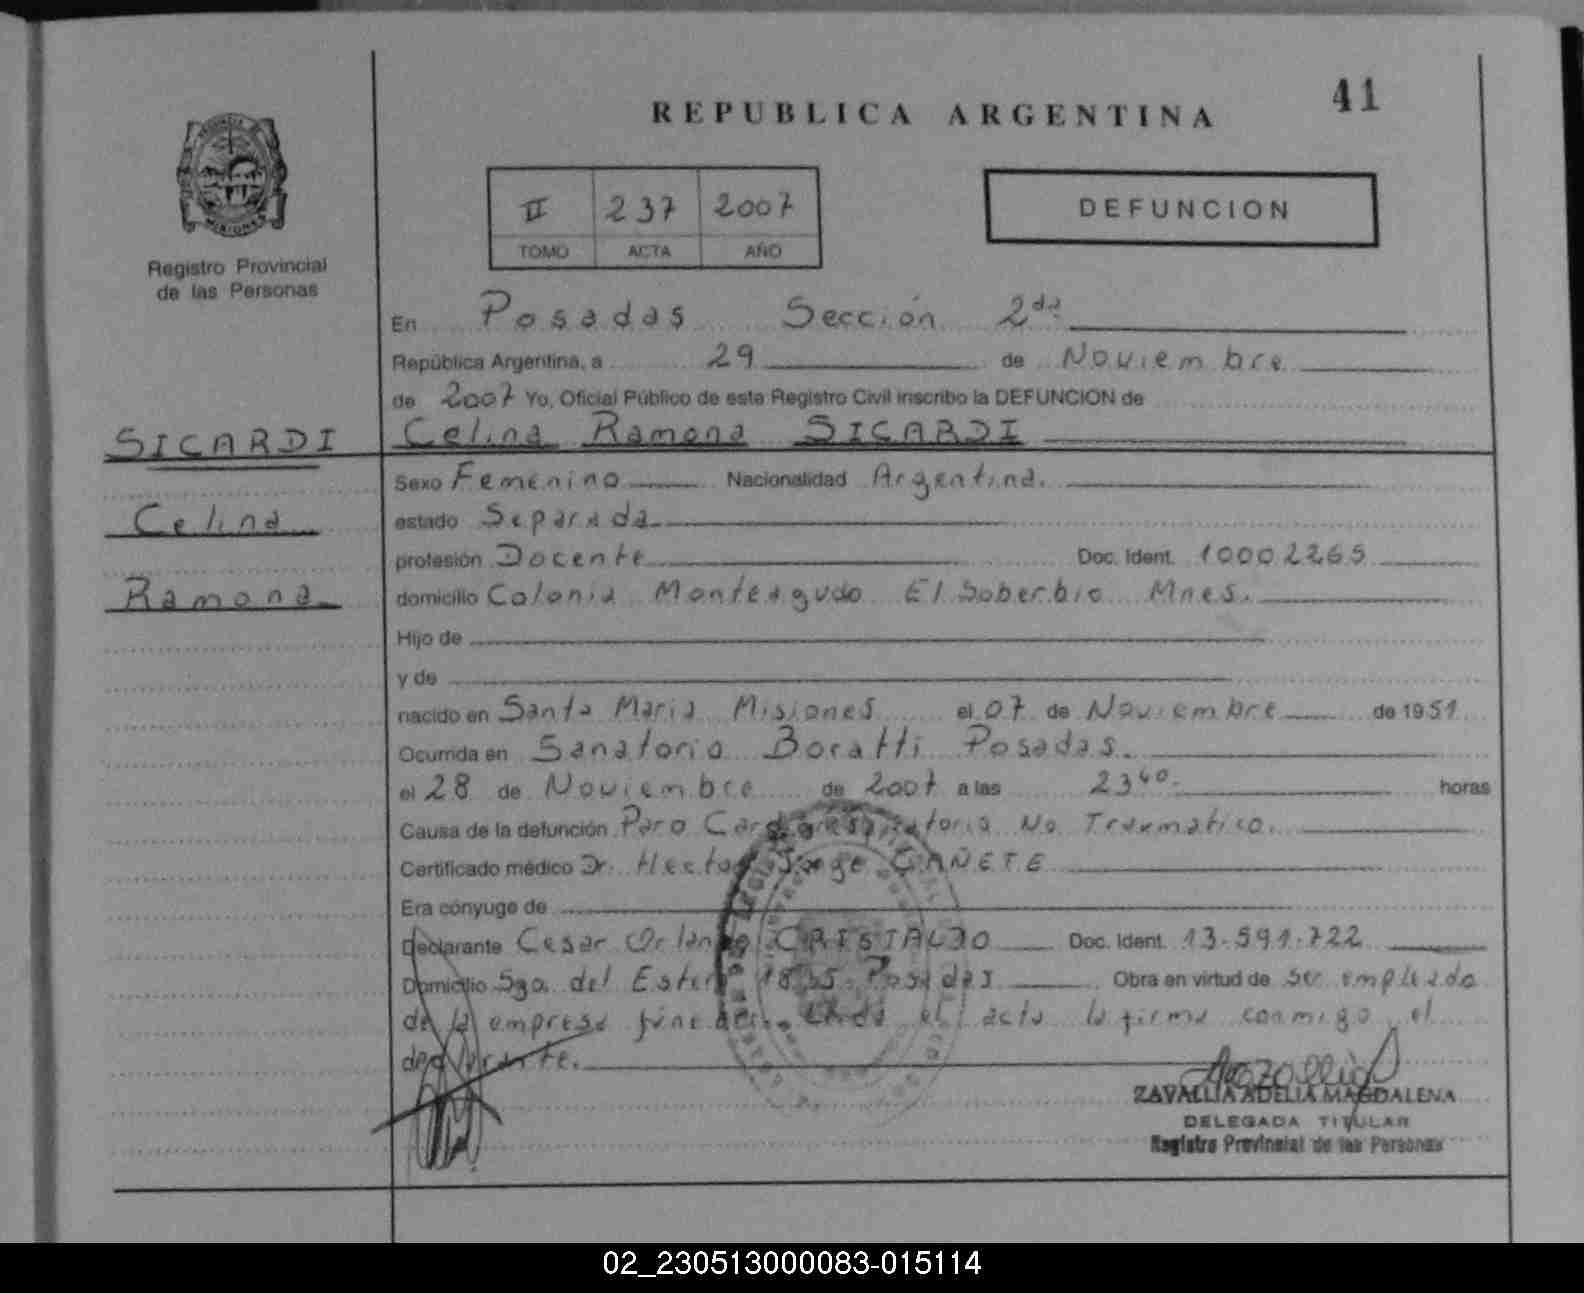 41
REPUBLICA ARGENTINA
II 237 2007
TOMO ACTA AÑO
DEFUNCION
PROVINCIA DE MISIONES
Registro Provincial
de las Personas
SICARDI
Celina
Ramona
En Posadas Sección 2da
República Argentina, a 29 de Noviembre
de 2007 Yo, Oficial Público de este Registro Civil inscribo la DEFUNCION de
Celina Ramona SICARDI
Sexo Femenino Nacionalidad Argentina.
estado Separada
profesión Docente Doc. Ident. 10002265
domicilio Colonia Monteagudo El Soberbio Mnes.
Hijo de
y de
nacido en Santa Maria Misiones el 07 de Noviembre de 1951
Ocurrida en Sanatorio Boratti Posadas.
el 28 de Noviembre de 2007 a las 23 40. horas
Causa de la defunción Paro Cardiorespiratorio No Traumatico.
Certificado médico Dr. Hector Jorge CAÑETE
Era cónyuge de
Declarante Cesar Orlando CRISTALDO Doc. Ident. 13.591.722
Domicilio Sgo. del Estero 1855 Posadas Obra en virtud de ser empleado
de la empresa fúnebre. Leída el acta la firma conmigo el
declarante.
ZAVALLIA ADELIA MAGDALENA
DELEGADA TITULAR
Registro Provincial de las Personas
02_230513000083-015114